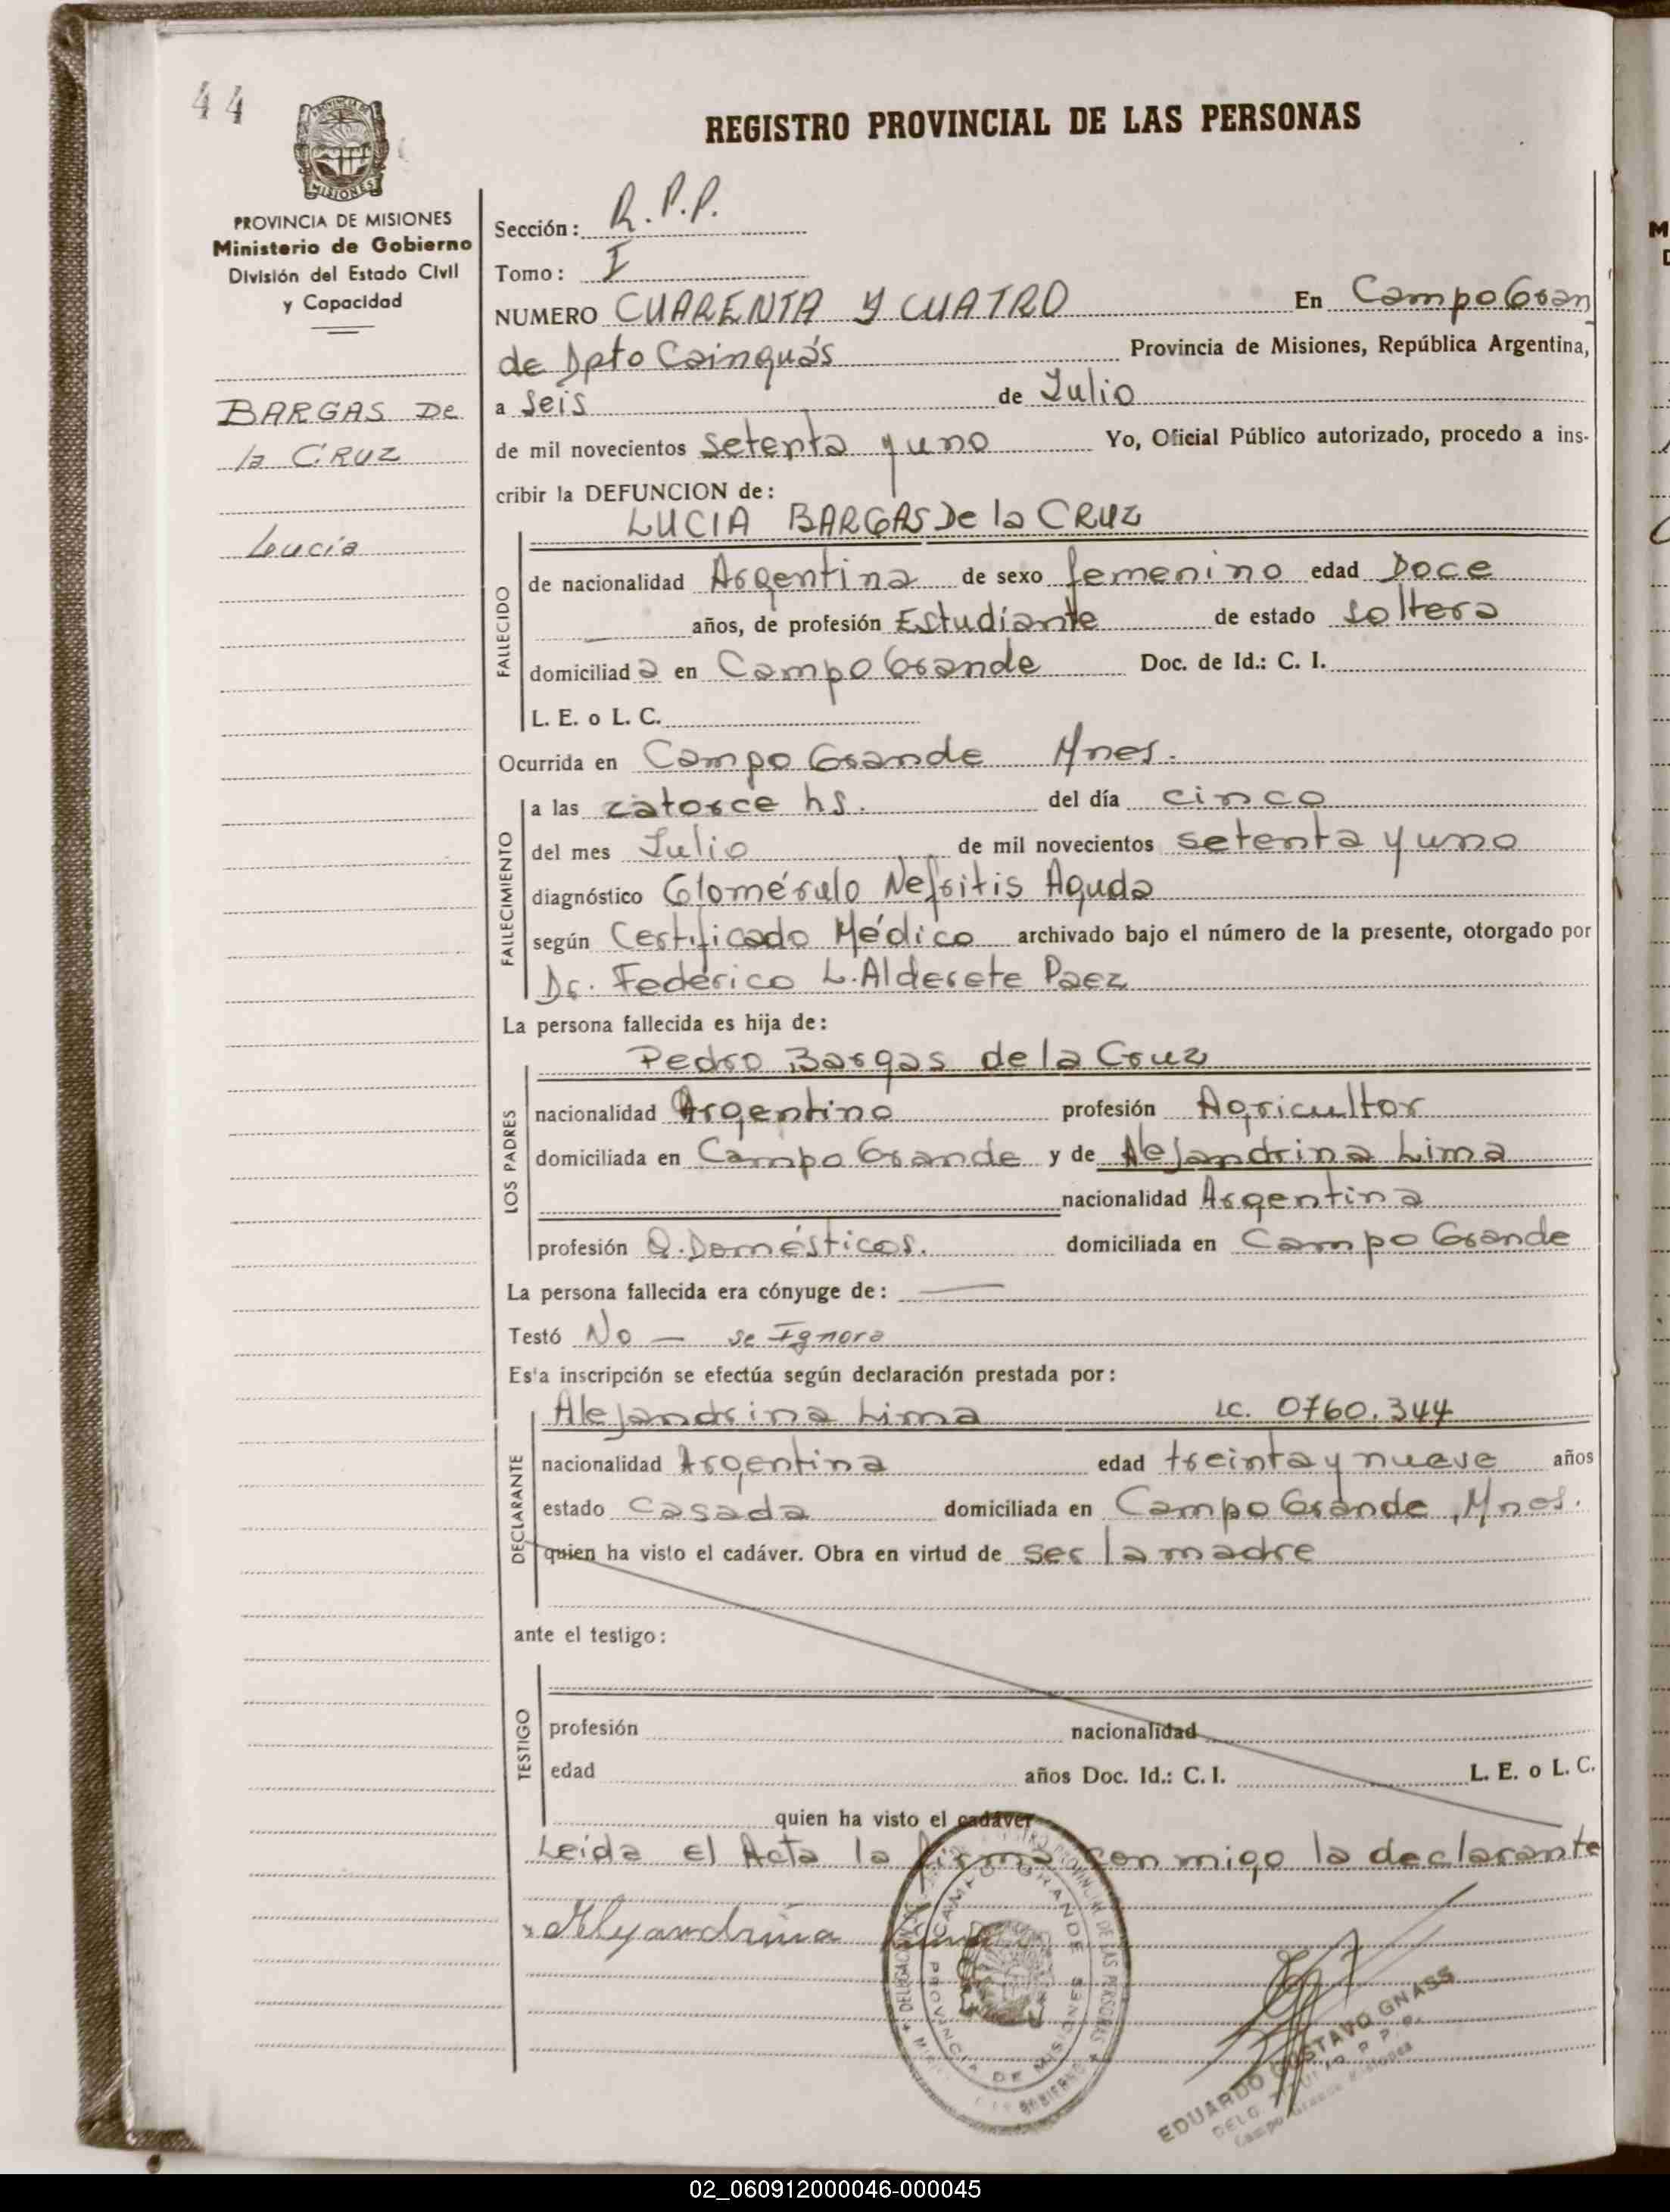 44
REGISTRO PROVINCIAL DE LAS PERSONAS
MISIONES
PROVINCIA DE MISIONES
Ministerio de Gobierno
División del Estado Civil
y Capacidad
BARGAS De
la CRUZ
Lucia
Sección: R.P.P.
Tomo: I
NUMERO CUARENTA Y CUATRO En Campo Gran
de Dpto Cainguás Provincia de Misiones, República Argentina,
a Seis de Julio
de mil novecientos setenta y uno Yo, Oficial Público autorizado, procedo a ins-
cribir la DEFUNCION de:
LUCIA BARGAS De la CRUZ
FALLECIDO
de nacionalidad Argentina de sexo femenino edad Doce
— años, de profesión Estudiante de estado soltera
domiciliad a en Campo Grande Doc. de Id.: C. I.
L. E. o L. C.
Ocurrida en Campo Grande Mnes.
FALLECIMIENTO
a las catorce hs. del día cinco
del mes Julio de mil novecientos setenta y uno
diagnóstico Glomérulo Nefritis Aguda
según Certificado Médico archivado bajo el número de la presente, otorgado por
Dr. Federico L. Alderete Paez
La persona fallecida es hija de:
Pedro Bargas de la Cruz
LOS PADRES
nacionalidad Argentino profesión Agricultor
domiciliada en Campo Grande y de Alejandrina Lima
nacionalidad Argentina
profesión Q. Domésticos. domiciliada en Campo Grande
La persona fallecida era cónyuge de: —
Testó No — se Ignora
Es'a inscripción se efectúa según declaración prestada por:
Alejandrina Lima LC. 0760.344
DECLARANTE
nacionalidad Argentina edad treinta y nueve años
estado Casada domiciliada en Campo Grande, Mnes.
quien ha visto el cadáver. Obra en virtud de ser la madre
ante el testigo:
TESTIGO
profesión nacionalidad
edad años Doc. Id.: C. I. L. E. o L. C.
quien ha visto el cadáver
Leida el Acta la firma con migo la declarante
Alejandrina Lima
CAMPO GRANDE
PROVINCIA DE MISIONES
EDUARDO GUSTAVO GNASS
Campo Grande Misiones
02_060912000046-000045